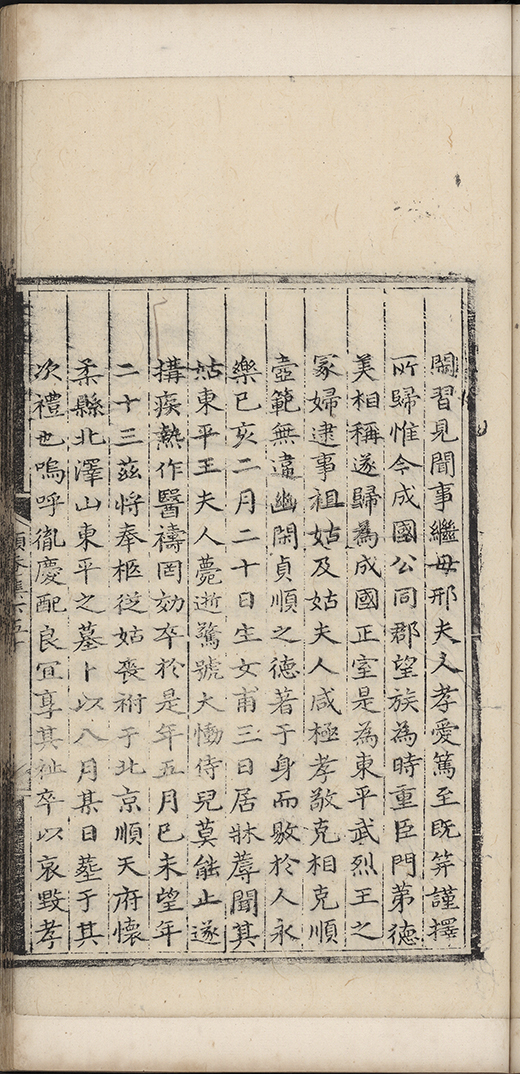 閑習見聞事繼母邢夫人孝愛篤至既笄謹擇
所歸惟今成國公同郡望族為時重臣門第德
美相稱遂歸為成國正室是為東平武烈王之
冢婦逮事祖姑及姑夫人咸極孝敬克相克順
壼範無違幽閑貞順之德著于身而敭於人永
樂己亥二月二十日生女甫三日居牀蓐聞其
姑東平王夫人薨逝驚號大慟侍兒莫能止遂
搆疾熱作醫禱罔効卒於是年五月己未望年
二十三茲將奉柩從姑喪祔于北京順天府懷
柔縣北澤山東平之墓卜以八月某日塟于其
次禮也嗚呼胤慶配良宜享其祉卒以哀毀孝